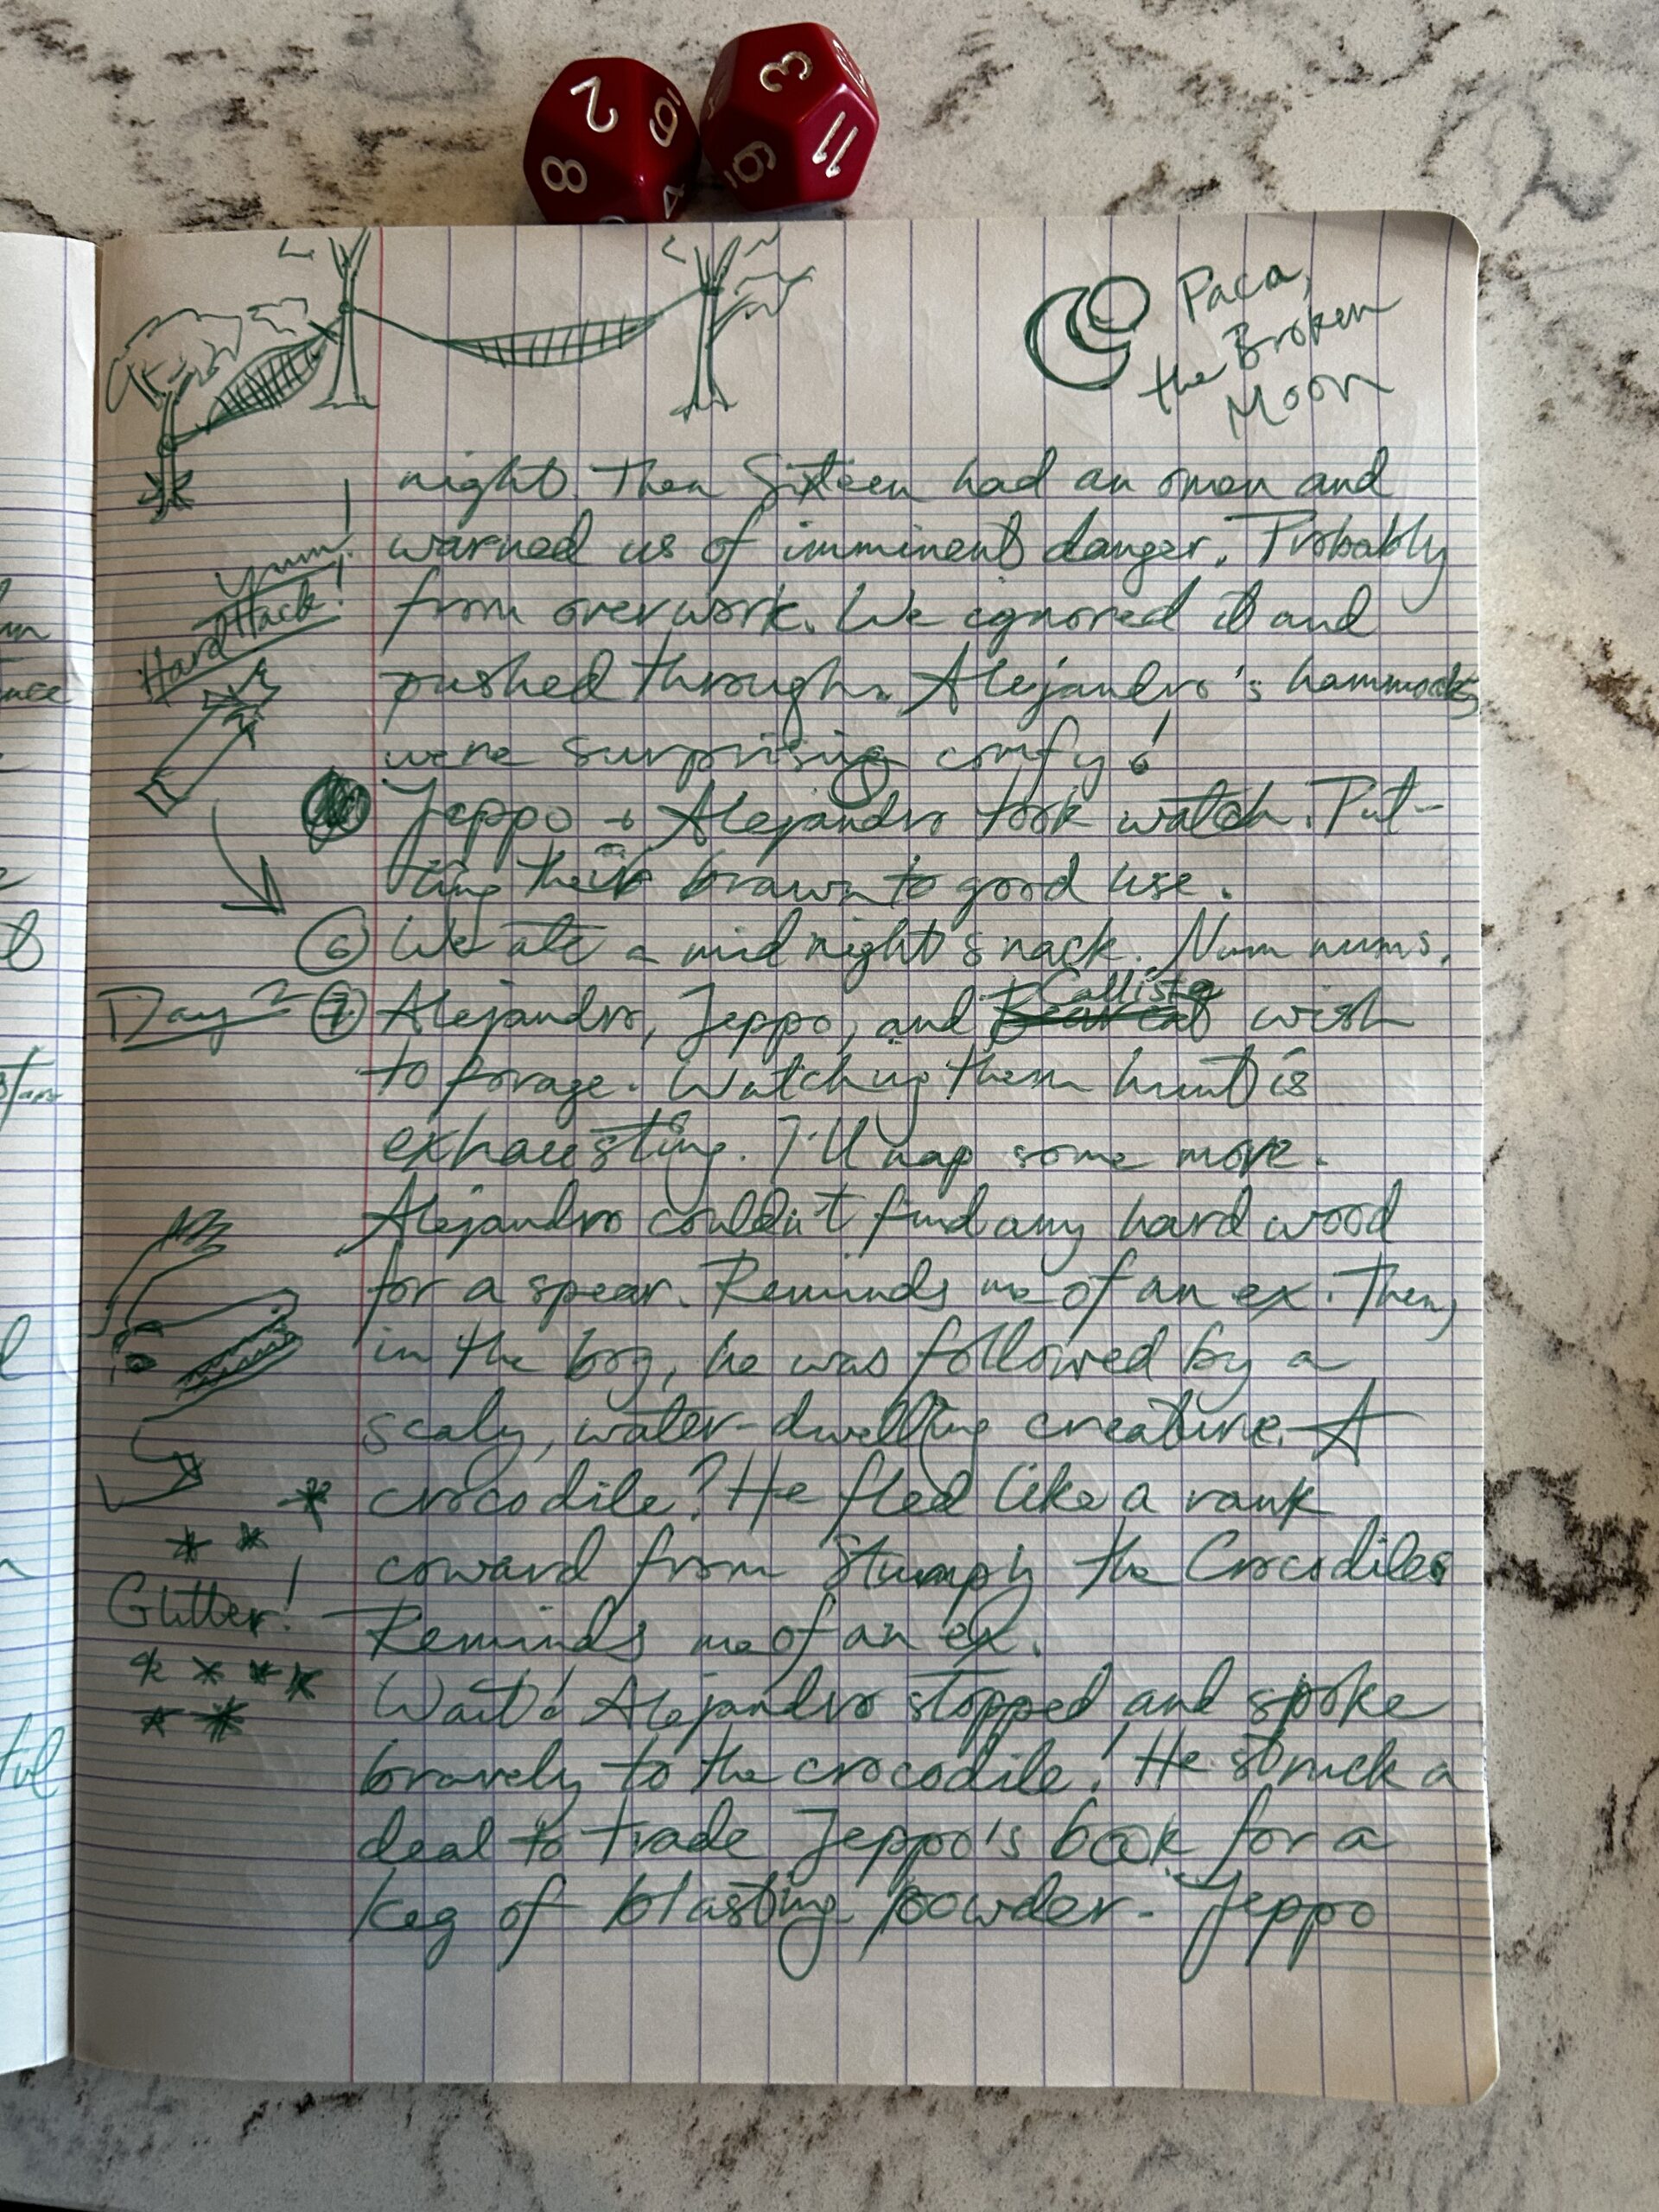 2
8
9
4
3
11
9
Paca,
the Broken
Moon
night. Then Sixteen had an omen and
warned us of imminent danger. Probably
from overwork. We ignored it and
pushed through. Alejandro's hammocks
were surprising comfy!
Yum!
Hard Hack!
Jeppo + Alejandro took watch. Put-
ting their brawn to good use.
6 We ate a midnight snack. Num nums.
Day 2 7 Alejandro, Jeppo, and Bearcat Callista wish
to forage. Watching them hunt is
exhausting. I'll nap some more.
Alejandro couldn't find any hard wood
for a spear. Reminds me of an ex. Then,
in the bog, he was followed by a
scaly, water-dwelling creature. A
crocodile? He fled like a rank
coward from Stumpy the Crocodile.
Glitter!
Reminds me of an ex.
Wait! Alejandro stopped and spoke
bravely to the crocodile! He struck a
deal to trade Jeppo's book for a
keg of blasting powder. Jeppo